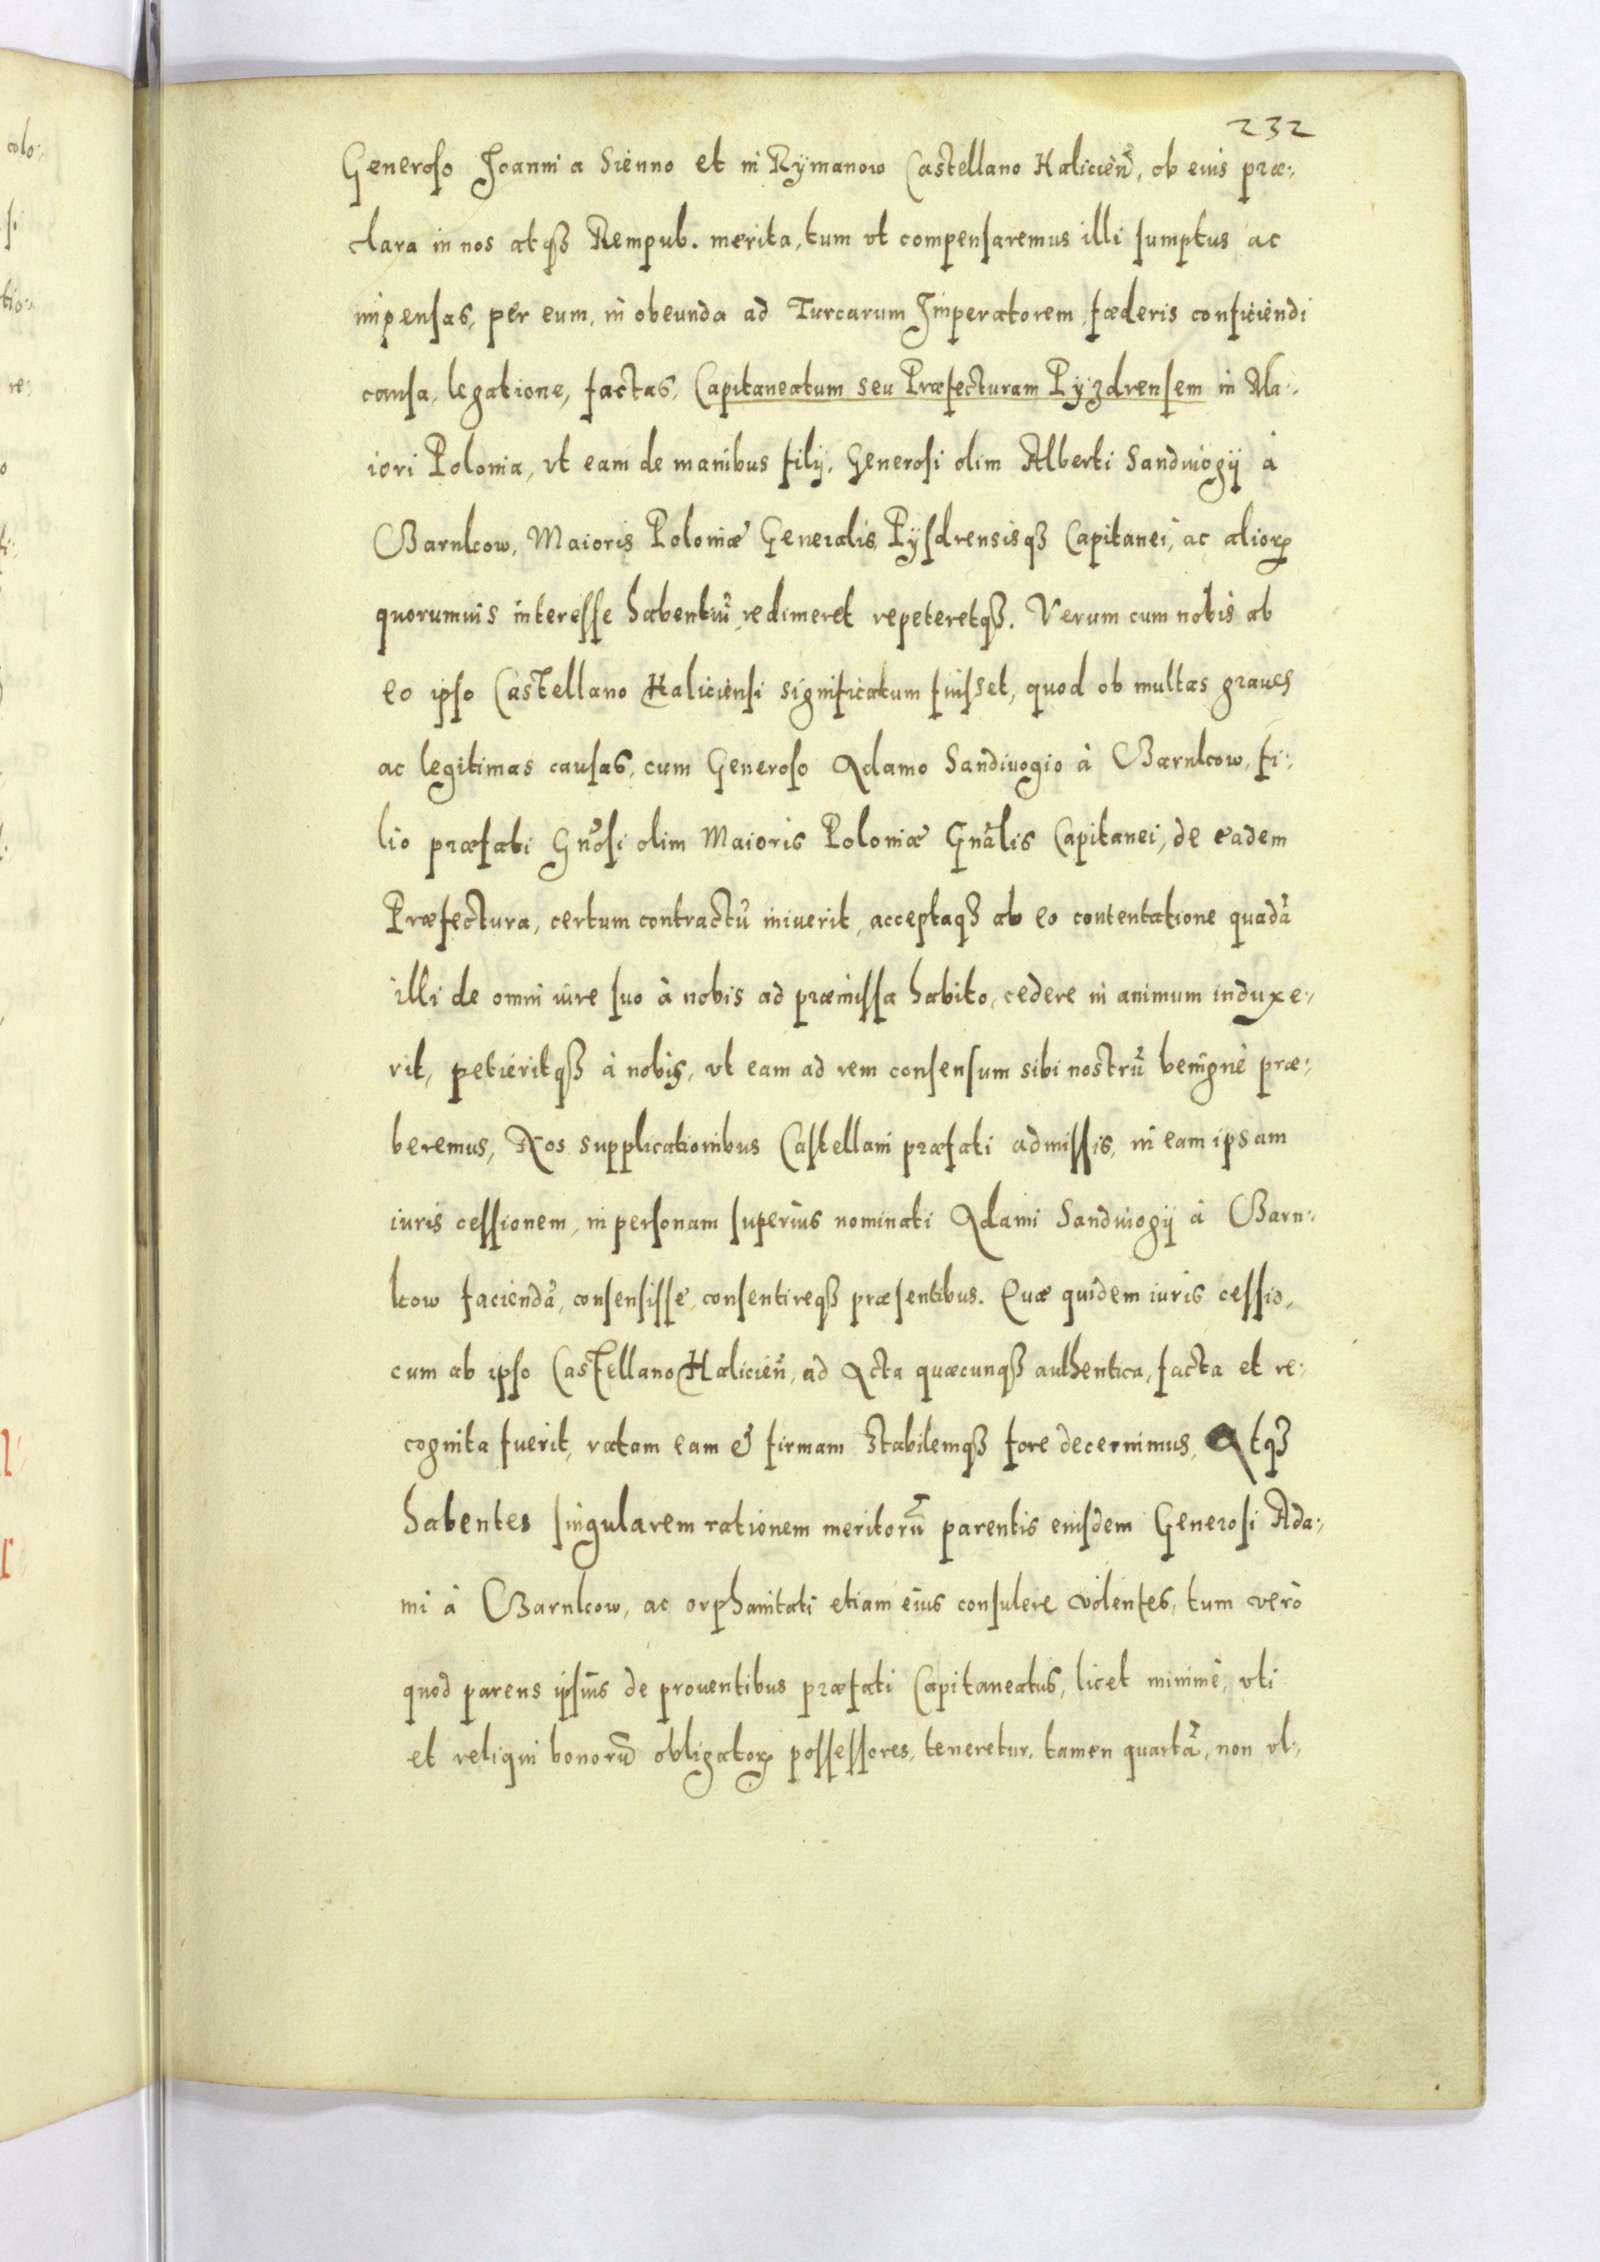 232
Generoso Joanni a Sienno et in Rymanow Castellano Halicień, ob eius præ-
clara in nos atqꝫ Rempub. merita, tum vt compensaremus illi sumptus ac
impensas, per eum, in obeunda ad Turcarum Imperatorem, fæderis conficiendi
causa, legatione, factas, Capitaneatum seu Præfecturam Pyzdrensem in Ma-
iori Polonia, vt eam de manibus filij, Generosi olim Alberti Sandiuogij à
Czarnkow, Maioris Poloniæ Generalis, Pysdrensisqꝫ Capitanei, ac alioꝝ
quorumuis interesse habentiū, redimeret repeteretqꝫ. Verum cum nobis ab
eo ipso Castellano Haliciensi significatum fuisset, quod ob multas graues
ac legitimas causas, cum Generoso Adamo Sandiuogio à Czarnkow, fi-
lio præfati Gnōsi olim Maioris Poloniæ Gnālis Capitanei, de eadem
Præfectura, certum contractū iniuerit, acceptaqꝫ ab eo contentatione quadā
illi de omni iure suo à nobis ad præmissa habito, cedere in animum induxe-
rit, petieritqꝫ à nobis, vt eam ad rem consensum sibi nostrū benignè præ-
beremus, Nos supplicationibus Castellani præfati admissis, in eam ipsam
iuris cessionem, in personam superius nominati Adami Sandiuogij à Czarn-
kow faciendā, consensisse, consentireqꝫ præsentibus. Quæ quidem iuris cessio,
cum ab ipso Castellano Halicień, ad Acta quæcunqꝫ authentica, facta et re-
cognita fuerit, ratam eam & firmam stabilemqꝫ fore decernimus, Atqꝫ
habentes singularem rationem meritorū parentis eiusdem Generosi Ada-
mi à Czarnkow, ac orphanitati etiam eius consulere volentes, tum verò
quod parens ipsius de prouentibus præfati Capitaneatus, licet minimè, vti
et reliqui bonorū obligatoꝝ possessores, teneretur, tamen quartā, non vl-